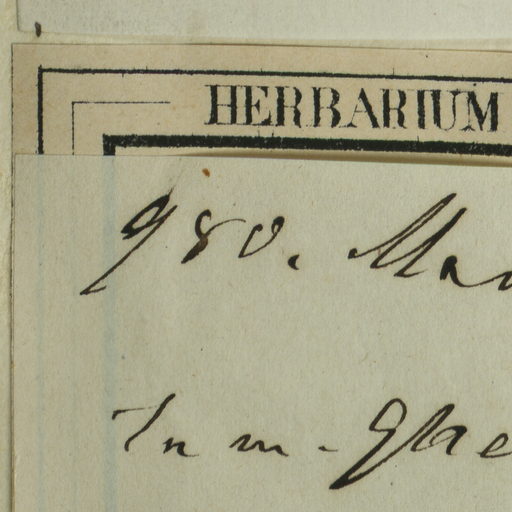 HERBARIUM
980. Mar
In m. Ghe